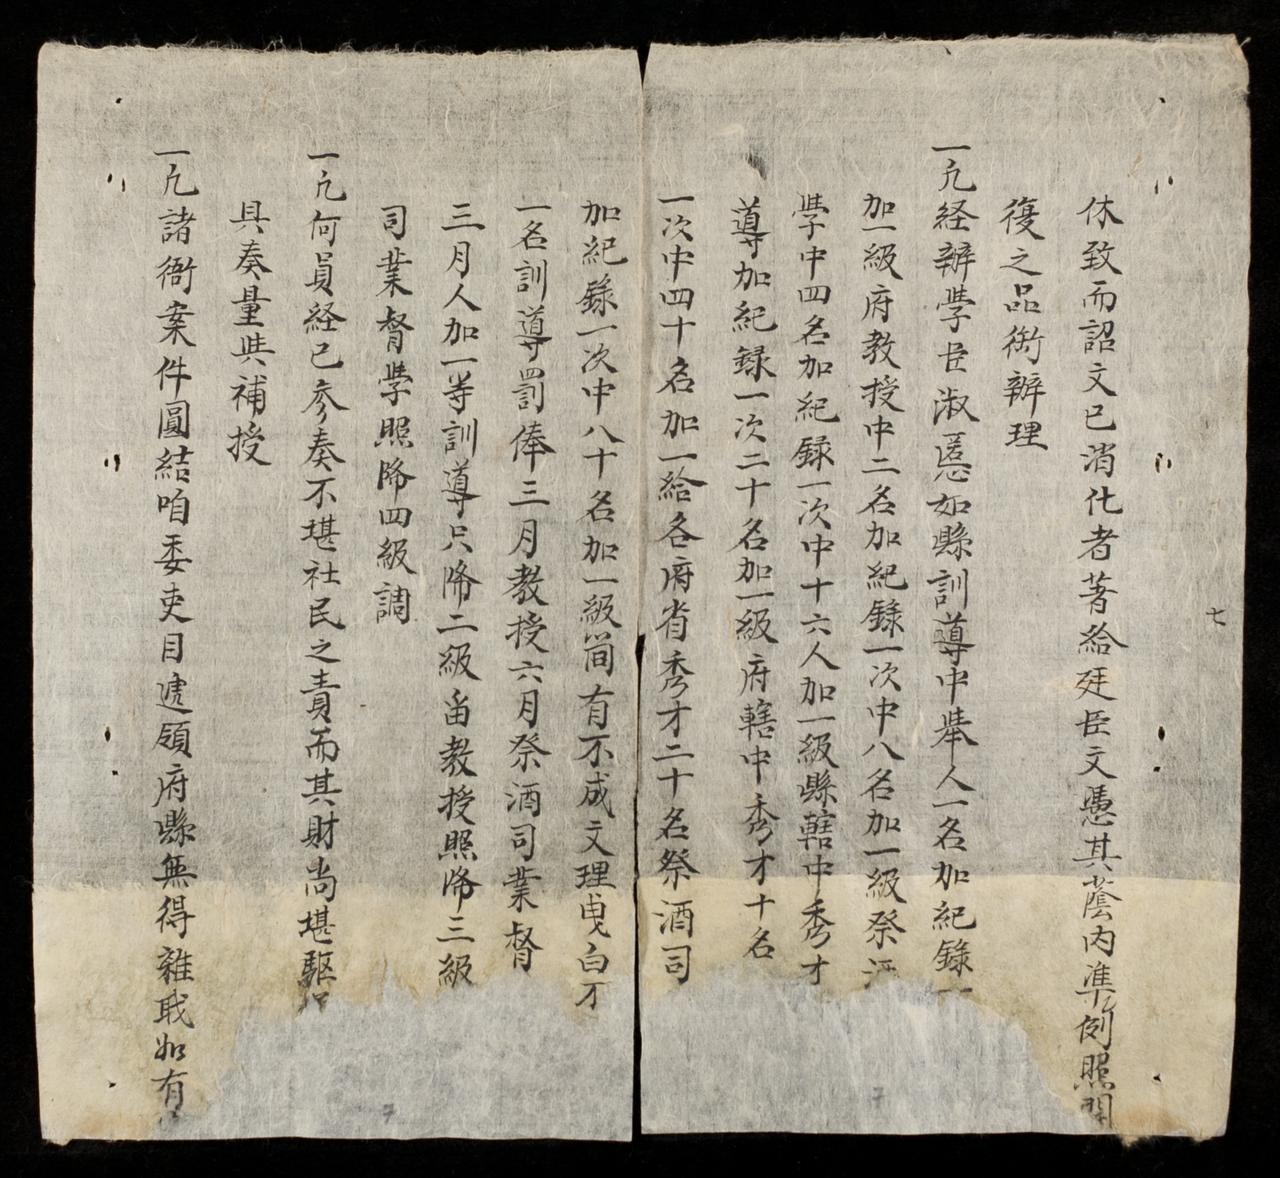 七
休致而詔文已消化者著給廷臣文憑其蔭内準例照開
復之品衙辦理
一凡経辦學臣淑慝如縣訓導中舉人一名加紀錄一
加一級府教授中二名加紀錄一次中八名加一級祭酒
學中四名加紀録一次中十六人加一級縣轄中秀才
導加紀録一次二十名加一級府轄中秀才十名
一次中四十名加一給各府省秀才二十名祭酒司
加紀錄一次中八十名加一級简有不成文理曳白不
一名訓導罰俸三月教授六月祭酒司業督
三月人加一等訓導只降二級留教授照降三級
司業督學照降四級調
一凡何員経已參奏不堪社民之責而其財尚堪驅
具奏量與補授
一凡諸衙案件圓結咱委吏目遞領府縣無得雜戢如有
7
7